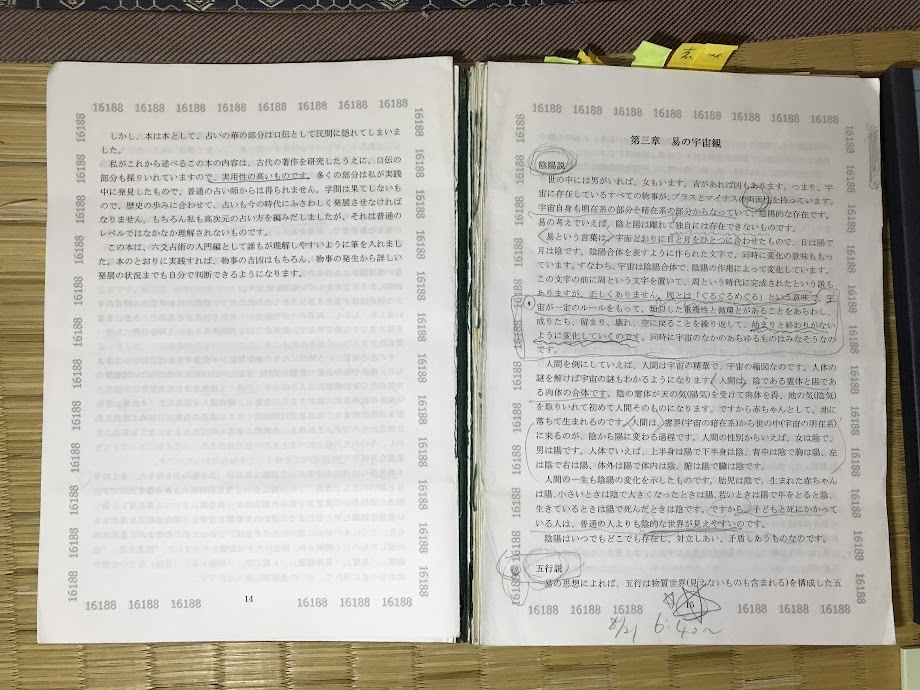 16188 16188 16188 16188 16188 16188 16188 16188
しかし、本は本として、占いの華の部分は口伝として民間に隠れてしまいま
した。
私がこれから述べるこの本の内容は、古代の著作を研究したうえに、口伝の
部分も採りいれていますので、実用性の高いものです。多くの部分は私が実践
中に発見したもので、普通の占い師からは得られません。学問は果てしないも
ので、歴史の歩みに合わせて、占いも今の時代にふさわしく発展させなければ
なりません。もちろん私も高次元の占い方を編みだしましたが、それは普通の
レベルではなかなか理解されないものです。
この本は、六爻占術の入門編として誰もが理解しやすいように筆を入れまし
た。本のとおりに実践すれば、物事の吉凶はもちろん、物事の発生から詳しい
発展の状況までも自分で判断できるようになります。
14
16188 16188 16188 16188 16188 16188
16188 16188 16188 16188 16188 16188 16188 16188
第三章 易の宇宙観
陰陽説
世の中には男がいれば、女もいます。吉があれば凶もあります。つまり、宇
宙に存在しているすべての物事が、プラスとマイナスの両面性を持っています。
宇宙自身も明在系の部分と暗在系の部分からなっていて、陰陽的な存在です。
易の考えでいえば、陰と陽は離れて独自には存在できないものです。
易という言葉は、字面どおりに日と月をひとつに合わせたもので、日は陽で
月は陰です。陰陽合体を表すように作られた文字で、同時に変化の意味ももっ
ています。すなわち、宇宙は陰陽合体で、陰陽の作用によって変化しています。
この文字の前に周という文字を置いて、周という時代に完成されたという説も
ありますが、正しくありません。周とは「ぐるぐるめぐる」という意味で、宇
宙が一定のルールをもって、類似した重複性と循環とがあることをあらわし、
成りたち、留まり、壊れ、空に戻ることを繰り返して、始まりと終わりがない
ように変化していくのです。同時に宇宙のなかのあらゆるものはみなそうなの
です。
人間を例にしていえば、人間は宇宙の精華で、宇宙の縮図なのです。人体の
謎を解けば宇宙の謎もわかるようになります。人間は、陰である霊体と陽であ
る肉体の合体です。陰の霊体が天の気(陽気)を受けて肉体を得、地の気(陰気)
を取りいれて初めて人間そのものになります。ですから赤ちゃんとして、地に
落ちて生まれるのです。人間は、霊界(宇宙の暗在系)から世の中(宇宙の明在系)
に来るのが、陰から陽に変わる過程です。人間の性別からいえば、女は陰で、
男は陽です。人体でいえば、上半身は陽で下半身は陰、背中は陰で胸は陽、左
は陰で右は陽、体外は陽で体内は陰、腑は陽で臓は陰です。
人間の一生も陰陽の変化を示したものです。胎児は陰で、生まれた赤ちゃん
は陽、小さいときは陰で大きくなったときは陽、若いときは陽で年をとると陰、
生きているときは陽で死んだときは陰です。ですから、子どもと死にかかって
いる人は、普通の人よりも陰的な世界が見えやすいのです。
陰陽はいつでもどこでも存在し、対立しあい、矛盾しあうものなのです。
五行説
易の思想によれば、五行は物質世界(見えないものも含まれる)を構成した五
15
16188 16188 16188 16188 16188 16188
6:40〜